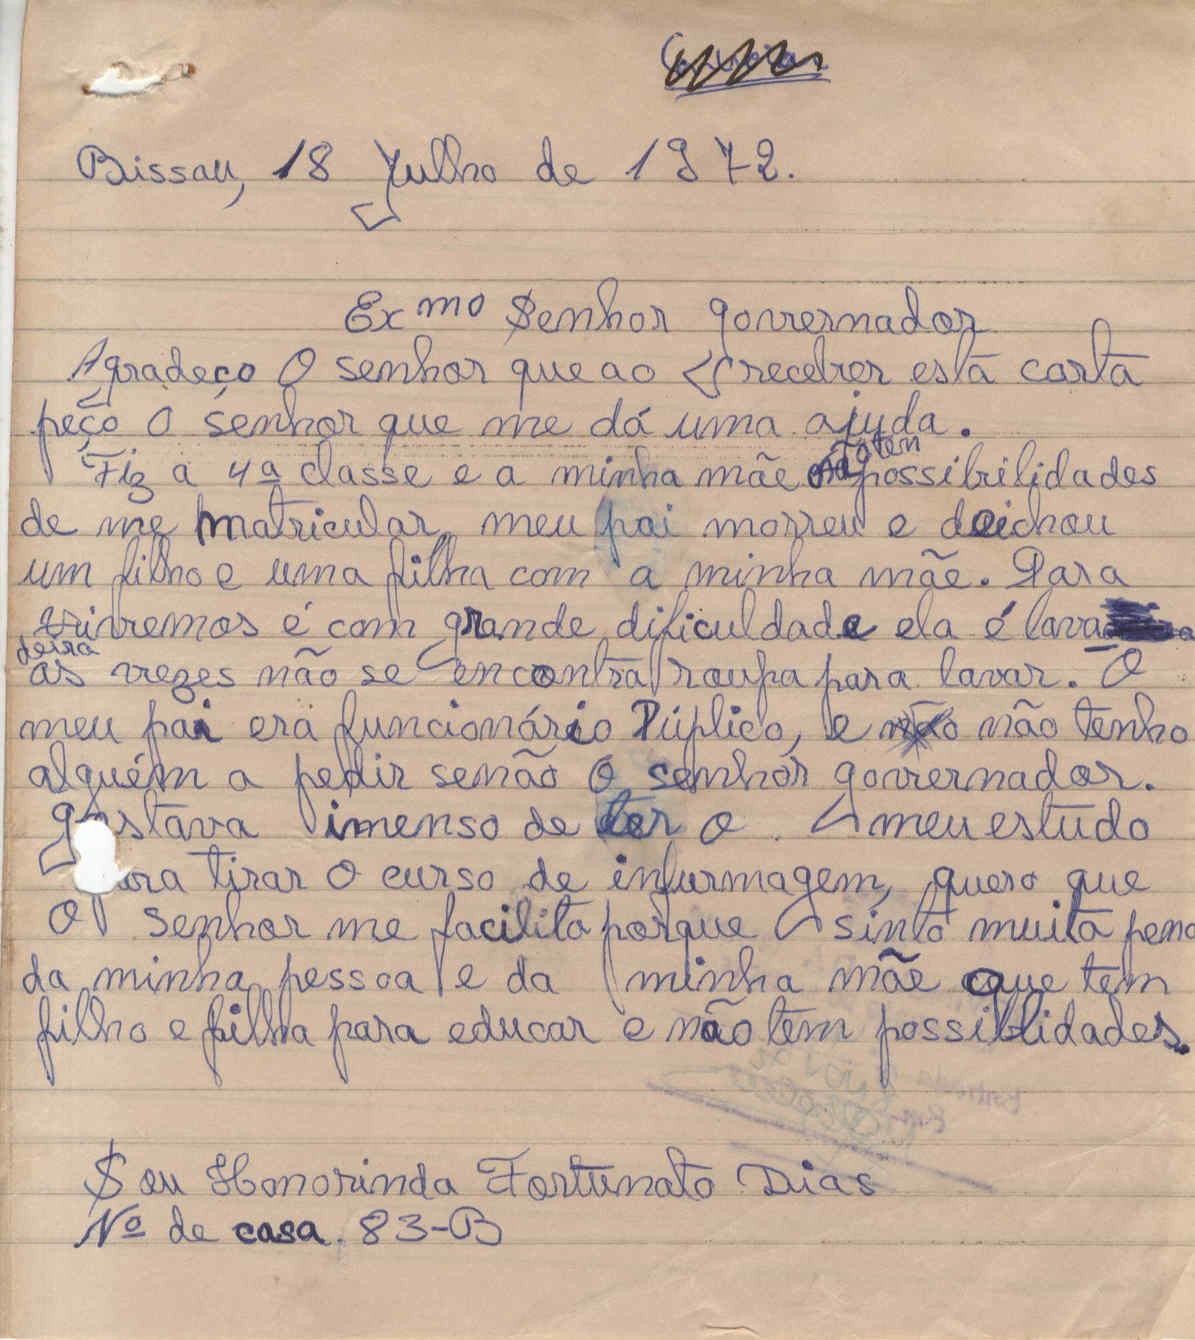 Bissau, 18 Julho de 1972.
Exmo Senhor governador
Agradeço O senhor que ao receber esta carta
peço O senhor que me dá uma ajuda.
Fiz a 4ª classe e a minha mãe não tem possibilidades
de me matricular, meu pai morreu e deichou
um filho e uma filha com a minha mãe. Para
vivremos é com grande dificuldade ela é lava
deira
as vezes não se encontra roupa para lavar. O
meu pai era funcionário Púplico, e não tenho
alguém a pedir senão O senhor governador.
gostava imenso de ter o meu estudo
para tirar O curso de infurmagem, quero que
O senhor me facilita porque sinto muita pena
da minha pessoa e da minha mãe que tem
filho e filha para educar e não tem possiblidades.
Sou Honorinda Fortunato Dias
Nº de casa. 83-B